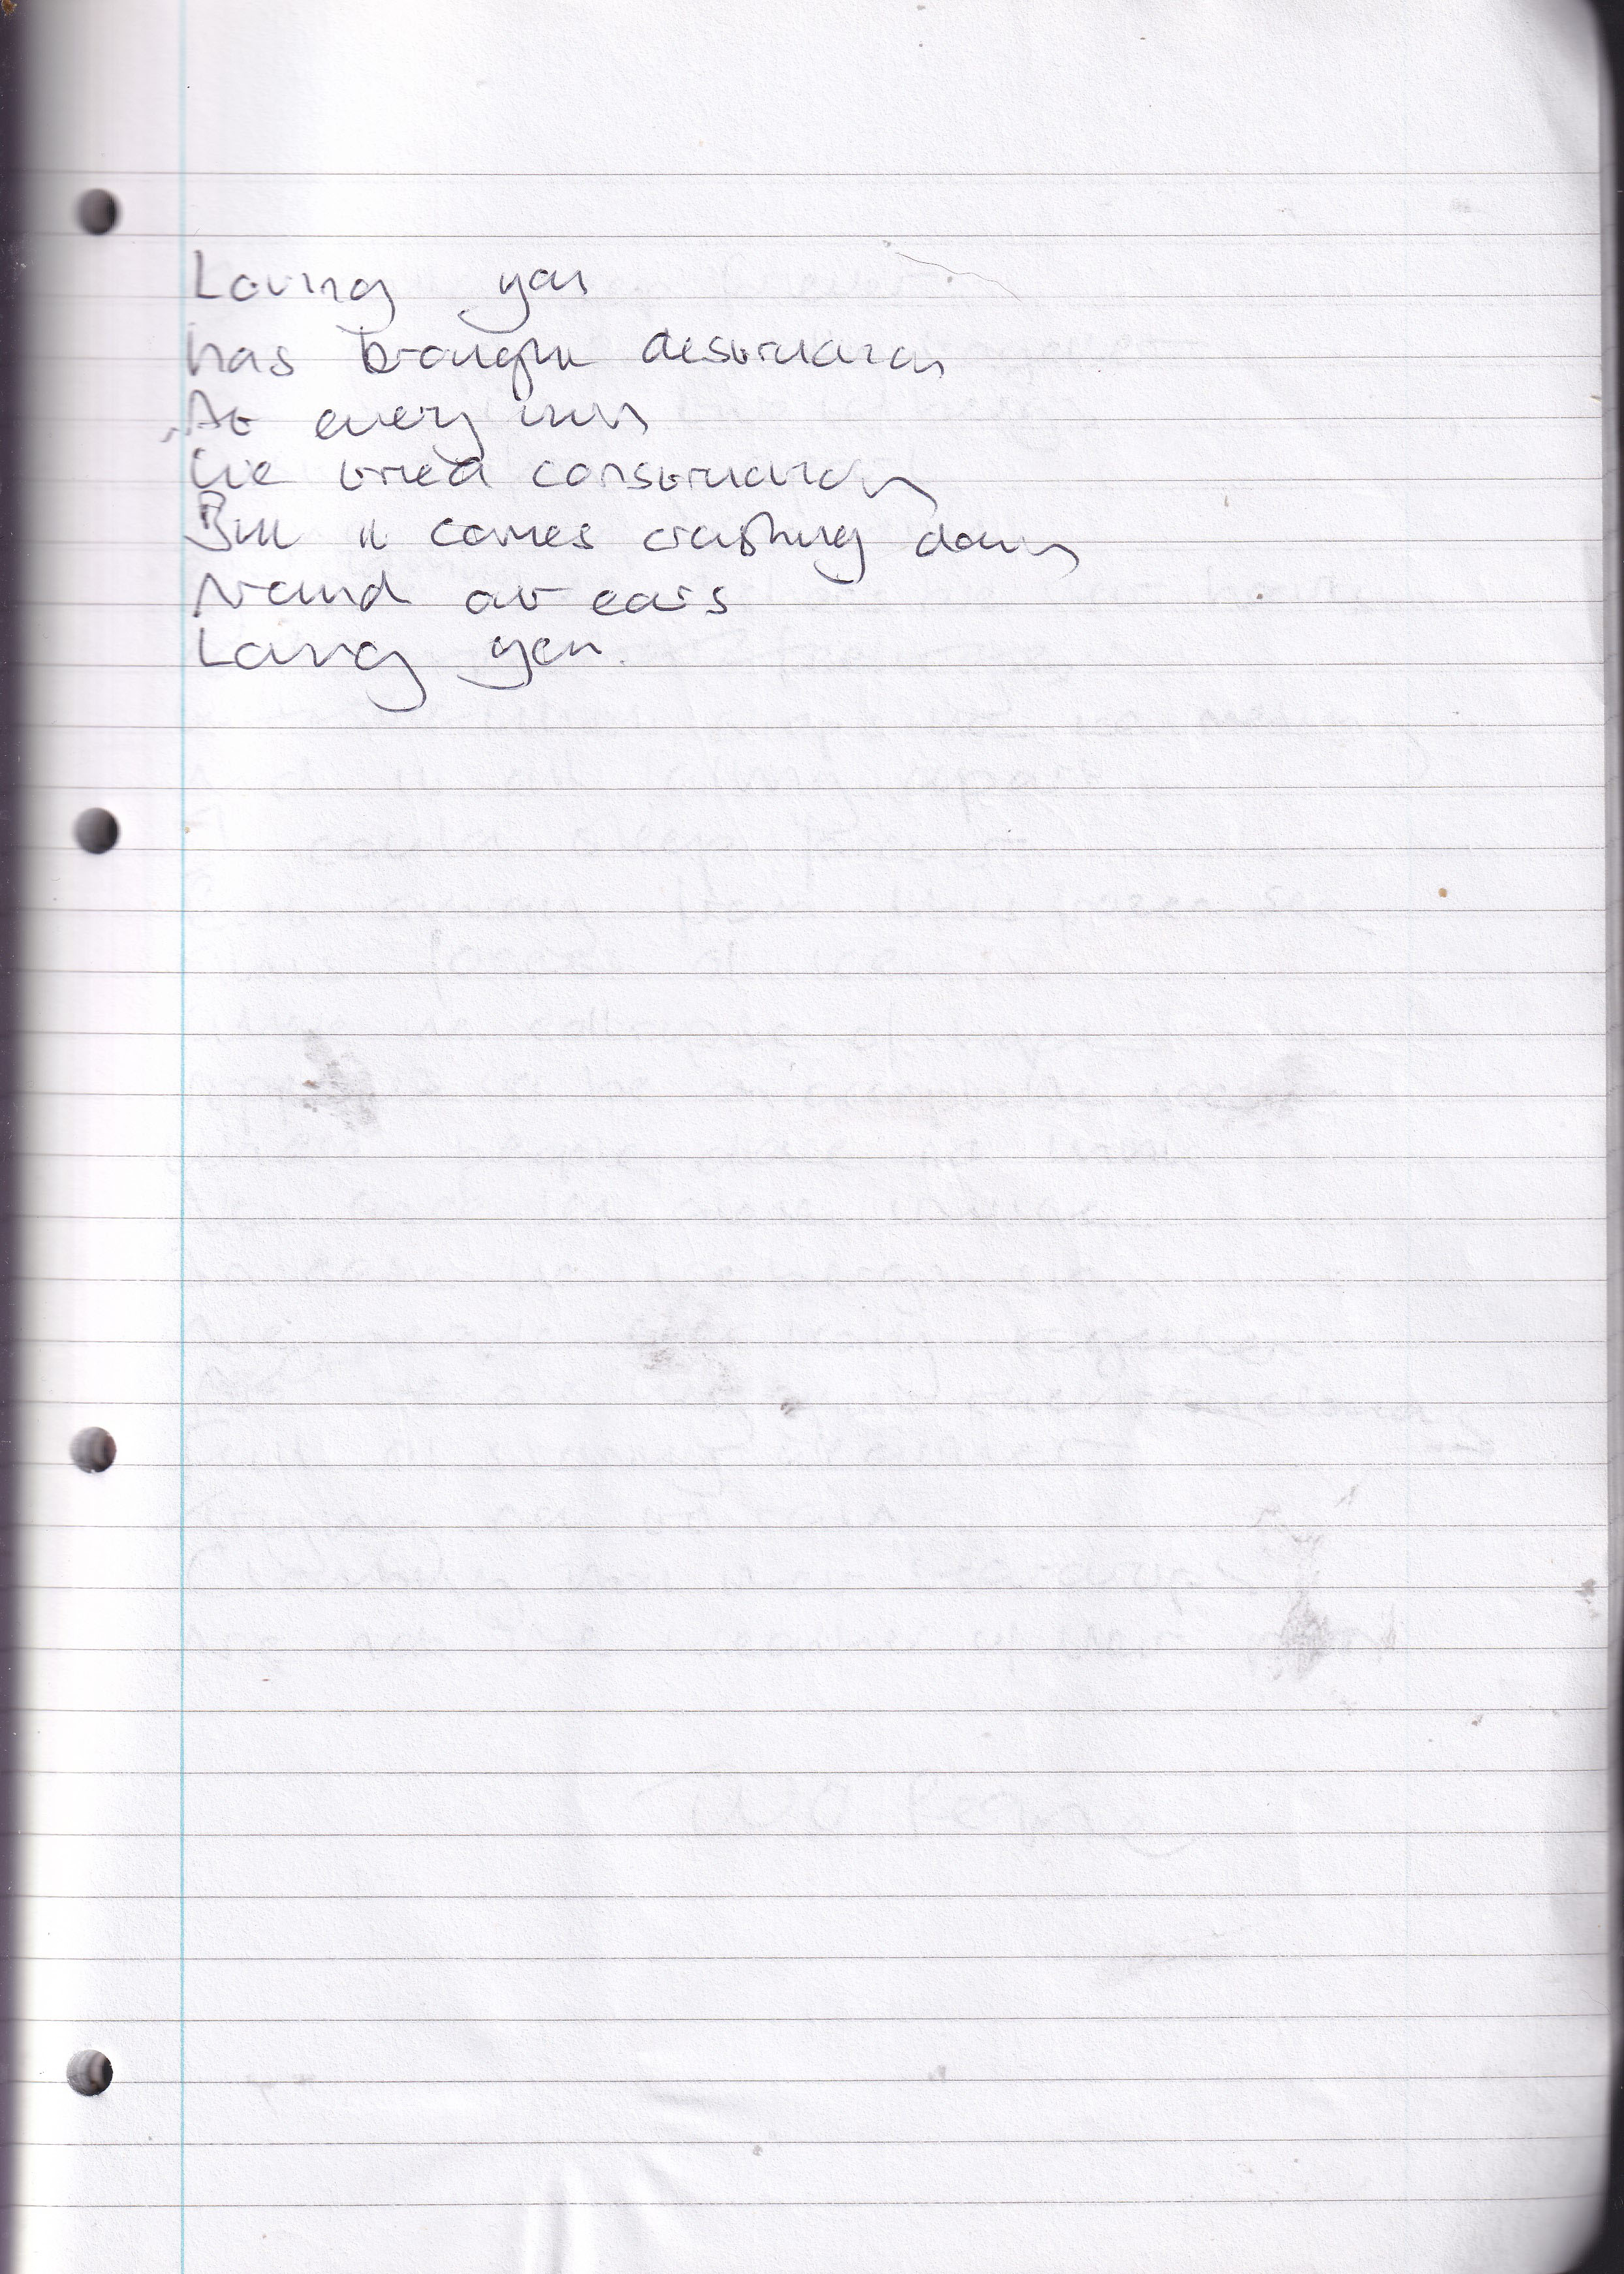 Loving you
has brought destruction
At every turn
We tried construction
But it comes crashing down
Round our ears
Loving you.